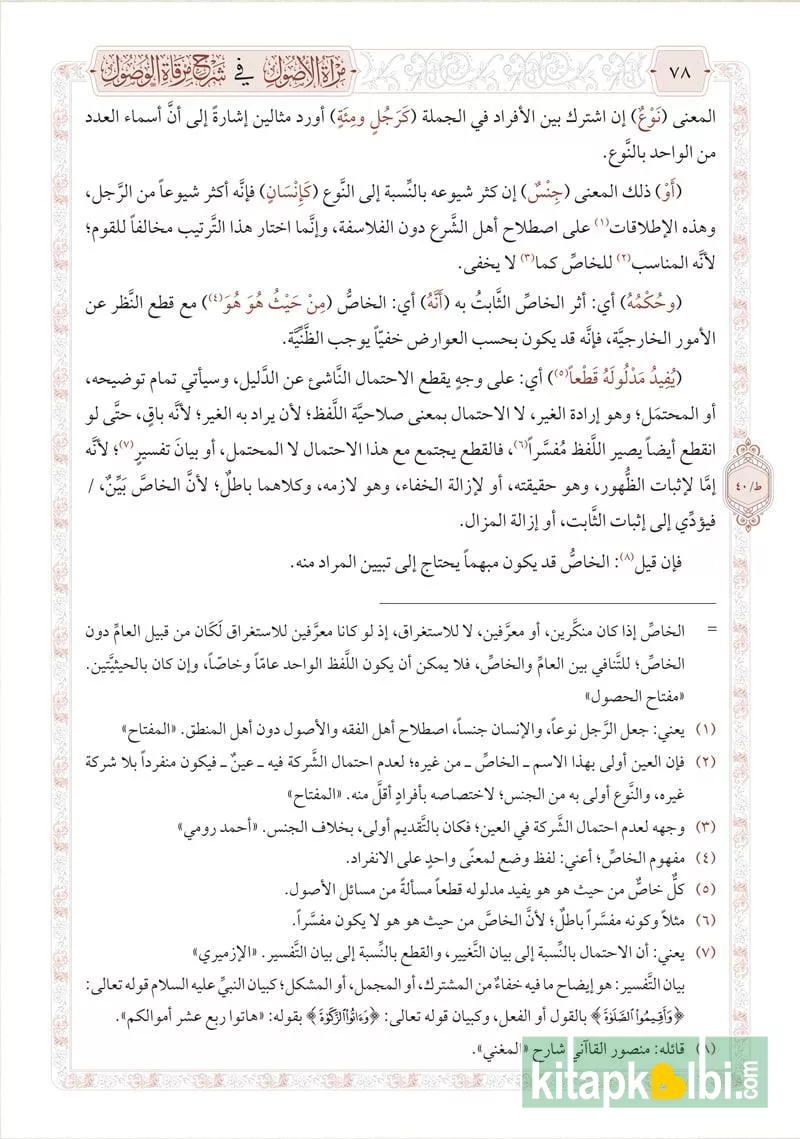 ٧٨
مرآة الأصول في شرح مرقاة الوصول
المعنى (نَوْعٌ) إن اشترك بين الأفراد في الجملة (كَرَجُلٍ ومِئَةٍ) أورد مثالين إشارةً إلى أنَّ أسماء العدد
من الواحد بالنَّوع.
(أَوْ) ذلك المعنى (جِنْسٌ) إن كثر شيوعه بالنِّسبة إلى النَّوع (كَإِنْسَانٍ) فإنَّه أكثر شيوعاً من الرَّجل،
وهذه الإطلاقات(١) على اصطلاح أهل الشَّرع دون الفلاسفة، وإنَّما اختار هذا التَّرتيب مخالفاً للقوم؛
لأنَّه المناسب(٢) للخاصِّ كما(٣) لا يخفى.
(وحُكْمُهُ) أي: أثر الخاصِّ الثَّابتُ به (أَنَّهُ) أي: الخاصُّ (مِنْ حَيْثُ هُوَ هُوَ(٤)) مع قطع النَّظر عن
الأمور الخارجيَّة، فإنَّه قد يكون بحسب العوارض خفيّاً يوجب الظَّنِّيَّة.
(يُفِيدُ مَدْلُولَهُ قَطْعاً(٥)) أي: على وجهٍ يقطع الاحتمال النَّاشئ عن الدَّليل، وسيأتي تمام توضيحه،
أو المحتمَل؛ وهو إرادة الغير، لا الاحتمال بمعنى صلاحيَّة اللَّفظ؛ لأن يراد به الغير؛ لأنَّه باقٍ، حتَّى لو
انقطع أيضاً يصير اللَّفظ مُفسَّراً(٦)، فالقطع يجتمع مع هذا الاحتمال لا المحتمل، أو بيانَ تفسيرٍ(٧)؛ لأنَّه
إمَّا لإثبات الظُّهور، وهو حقيقته، أو لإزالة الخفاء، وهو لازمه، وكلاهما باطلٌ؛ لأنَّ الخاصَّ بَيِّنٌ، /
ط/٤٠
فيؤدِّي إلى إثبات الثَّابت، أو إزالة المزال.
فإن قيل(٨): الخاصُّ قد يكون مبهماً يحتاج إلى تبيين المراد منه.
= الخاصِّ إذا كان منكَّرين، أو معرَّفين، لا للاستغراق، إذ لو كانا معرَّفين للاستغراق لَكَان من قبيل العامِّ دون
الخاصِّ؛ للتَّنافي بين العامِّ والخاصِّ، فلا يمكن أن يكون اللَّفظ الواحد عامّاً وخاصّاً، وإن كان بالحيثيَّتين.
«مفتاح الحصول»
(١) يعني: جعل الرَّجل نوعاً، والإنسان جنساً، اصطلاح أهل الفقه والأصول دون أهل المنطق. «المفتاح»
(٢) فإن العين أولى بهذا الاسم ـ الخاصِّ ـ من غيره؛ لعدم احتمال الشَّركة فيه ـ عينٌ ـ فيكون منفرداً بلا شركة
غيره، والنَّوع أولى به من الجنس؛ لاختصاصه بأفرادٍ أقلَّ منه. «المفتاح»
(٣) وجهه لعدم احتمال الشَّركة في العين؛ فكان بالتَّقديم أولى، بخلاف الجنس. «أحمد رومي»
(٤) مفهوم الخاصِّ؛ أعني: لفظ وضع لمعنًى واحدٍ على الانفراد.
(٥) كلُّ خاصٍّ من حيث هو هو يفيد مدلوله قطعاً مسألةٌ من مسائل الأصول.
(٦) مثلاً وكونه مفسَّراً باطلٌ؛ لأنَّ الخاصَّ من حيث هو هو لا يكون مفسَّراً.
(٧) يعني: أن الاحتمال بالنَّسبة إلى بيان التَّغيير، والقطع بالنَّسبة إلى بيان التَّفسير. «الإزميري»
بيان التَّفسير: هو إيضاح ما فيه خفاءٌ من المشترك، أو المجمل، أو المشكل؛ كبيان النبيِّ عليه السلام قوله تعالى:
﴿وَأَقِيمُوا۟ ٱلصَّلَوٰةَ﴾ بالقول أو الفعل، وكبيان قوله تعالى: ﴿وَءَاتُوا۟ ٱلزَّكَوٰةَ﴾ بقوله: «هاتوا ربع عشر أموالكم».
(٨) قائله: منصور القاآني شارح «المغني».
kitapkolbi.com